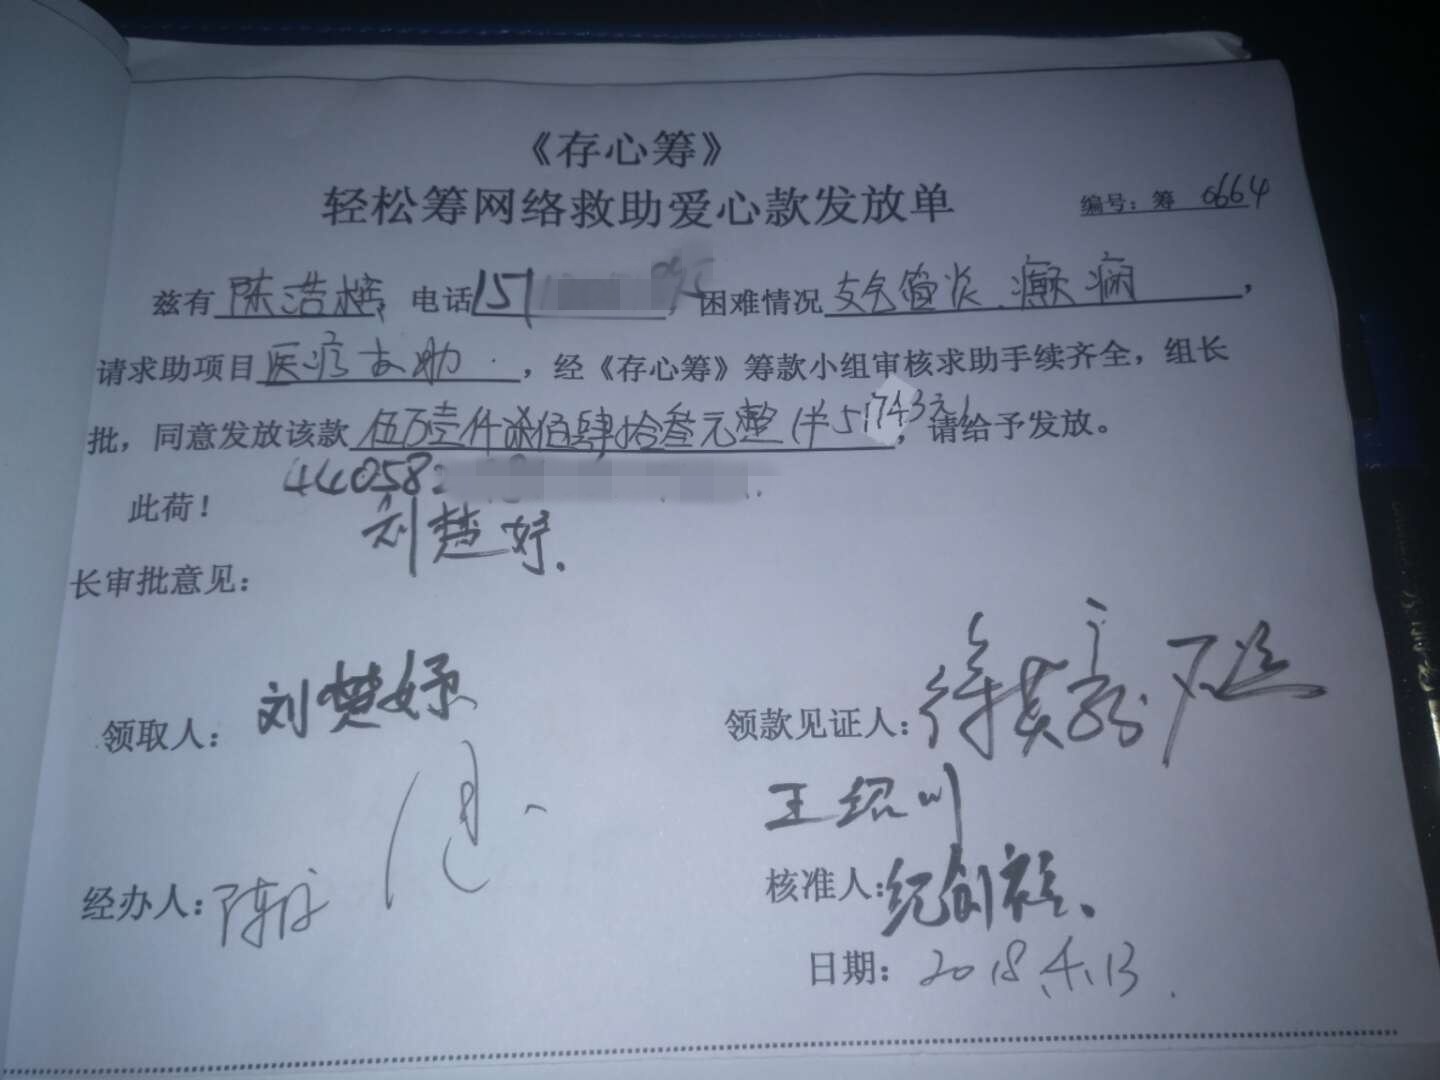 《存心筹》
轻松筹网络救助爱心款发放单 编号：筹 0664
兹有 陈浩 ，电话 151 ，困难情况 支气管炎、癫痫 ，
请求助项目 医疗求助 ，经《存心筹》筹款小组审核求助手续齐全，组长
批，同意发放该款 伍万壹仟柒佰肆拾叁元整（¥51743元） ，请给予发放。
440582
此荷！
刘楚妤.
长审批意见：
领取人： 刘楚妤 领款见证人：
王绍川
经办人： 陈 核准人： 纪创
日期： 2018.4.13.